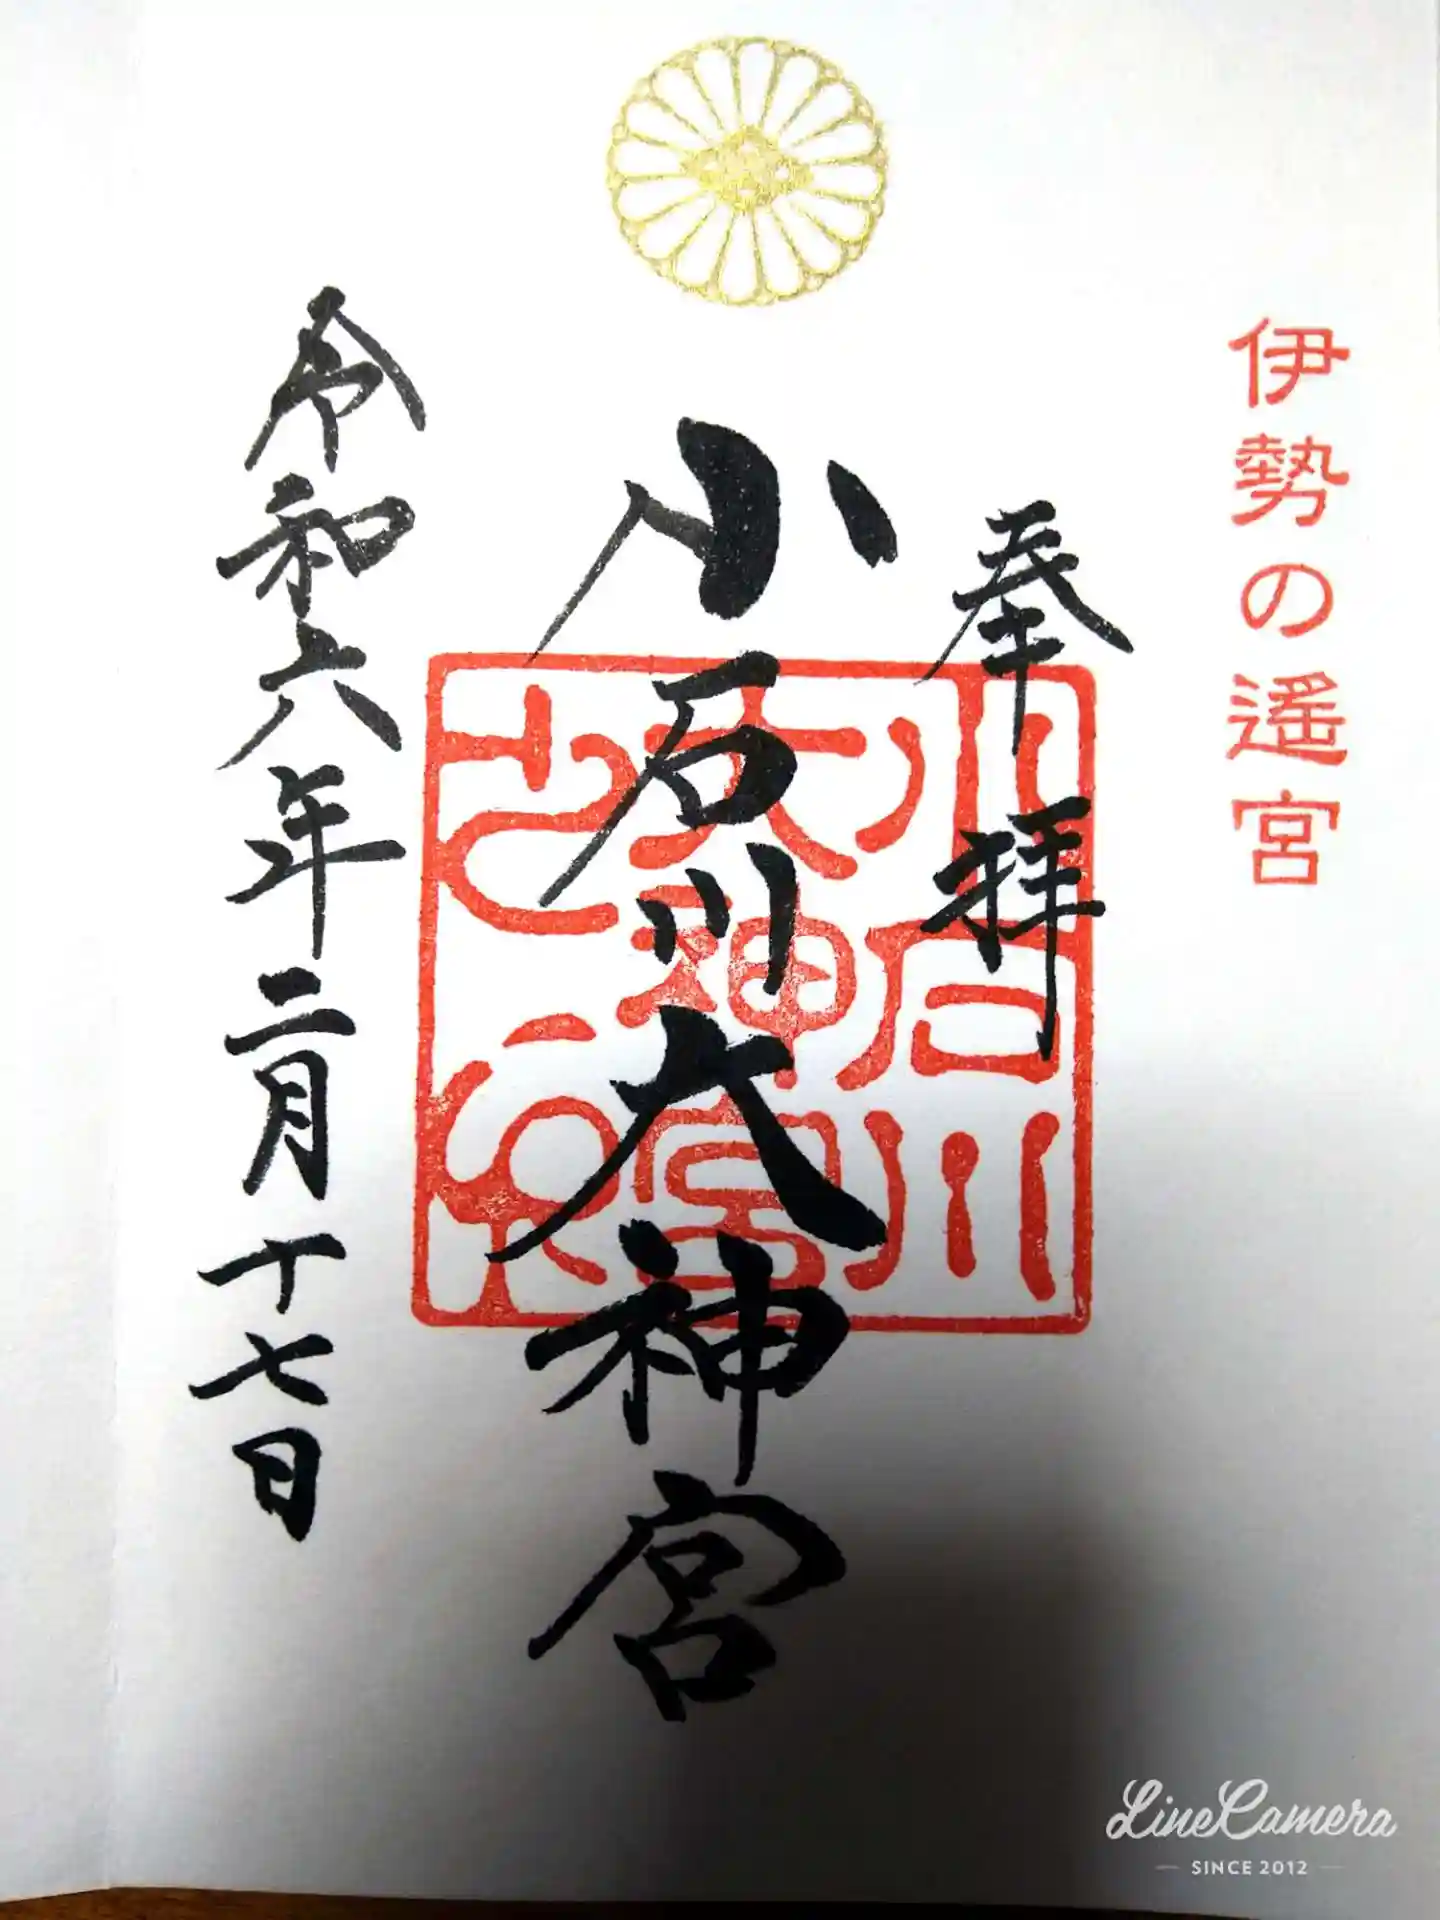 伊勢の遥宮
奉拝
小石川大神宮
小石川
大神宮
之印
令和六年二月十七日
LineCamera
SINCE 2012